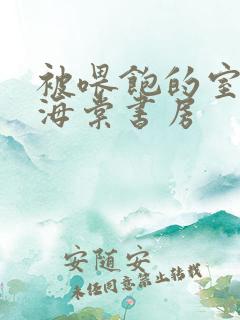 被喂饱的室
海棠书房
安随安
未经同意禁止转载